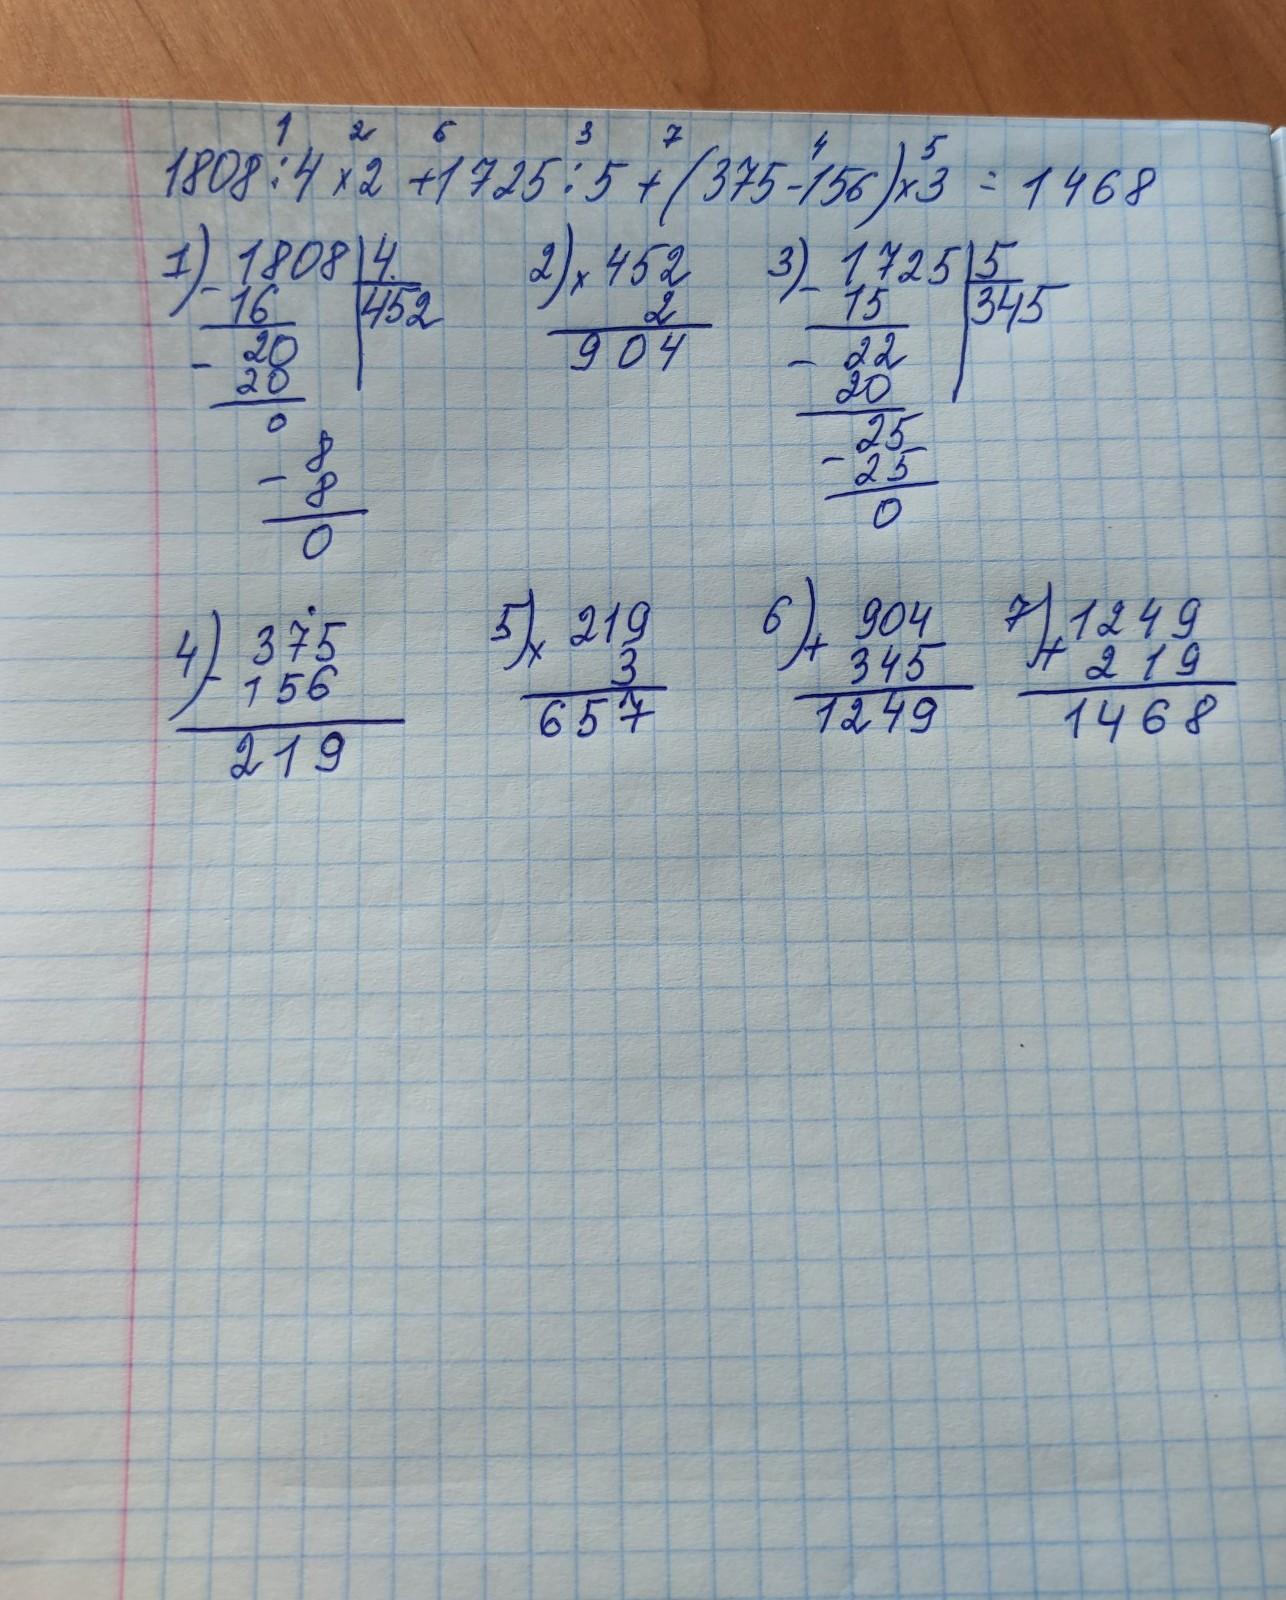 1 2 6 3 7 4 5
1808:4×2+1725:5+(375-156)×3=1468
1) 1808 4 2) ×452 3) 1725 5
- 16 452 2 - 15 345
- 20 904 - 22
20 20
0 - 25
- 8 25
8 0
0
4) - 375 5) × 219 6) + 904 7) + 1249
156 3 345 219
219 657 1249 1468